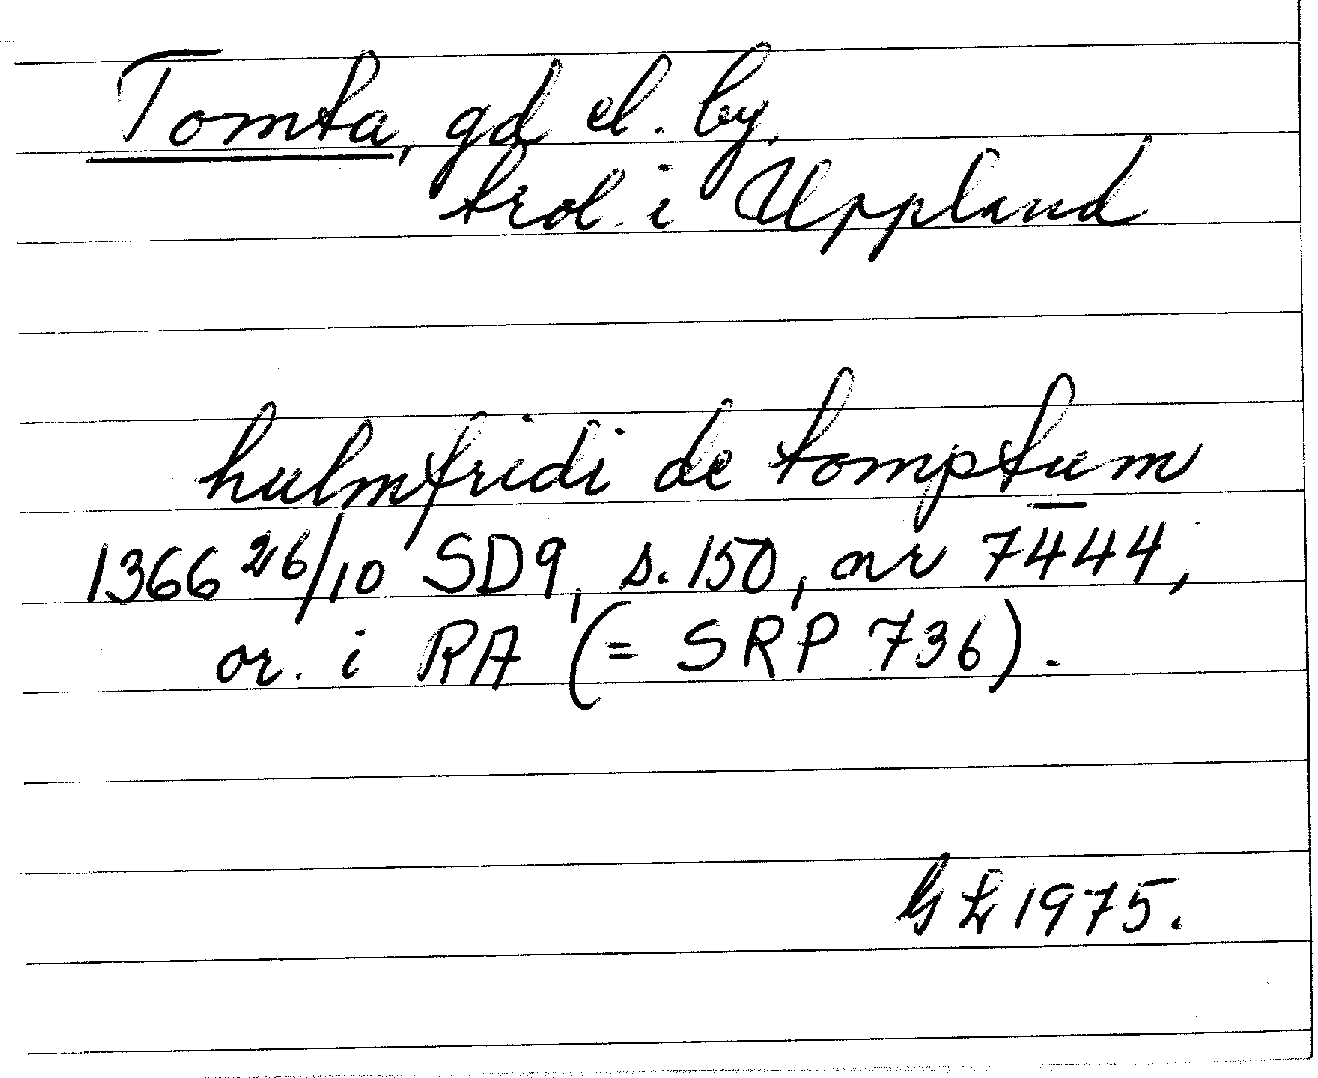 Tomta, gd el. by.
trol. i Uppland
hulmfridi de tomptum
1366 26/10 SD9, s. 150, nr 7444,
or. i RA (= SRP 736).
GL 1975.